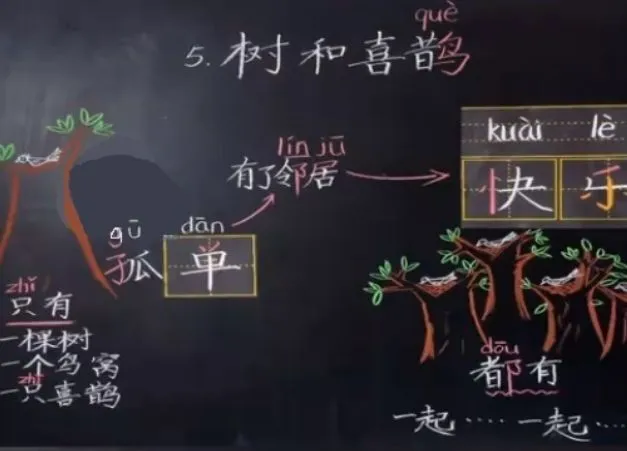 què
5. 树和喜鹊
kuài lè
快乐
lín jū
有了邻居
gū dān
孤单
zhǐ
只有
一棵树
一个鸟窝
zhī
一只喜鹊
dōu
都有
一起····一起····